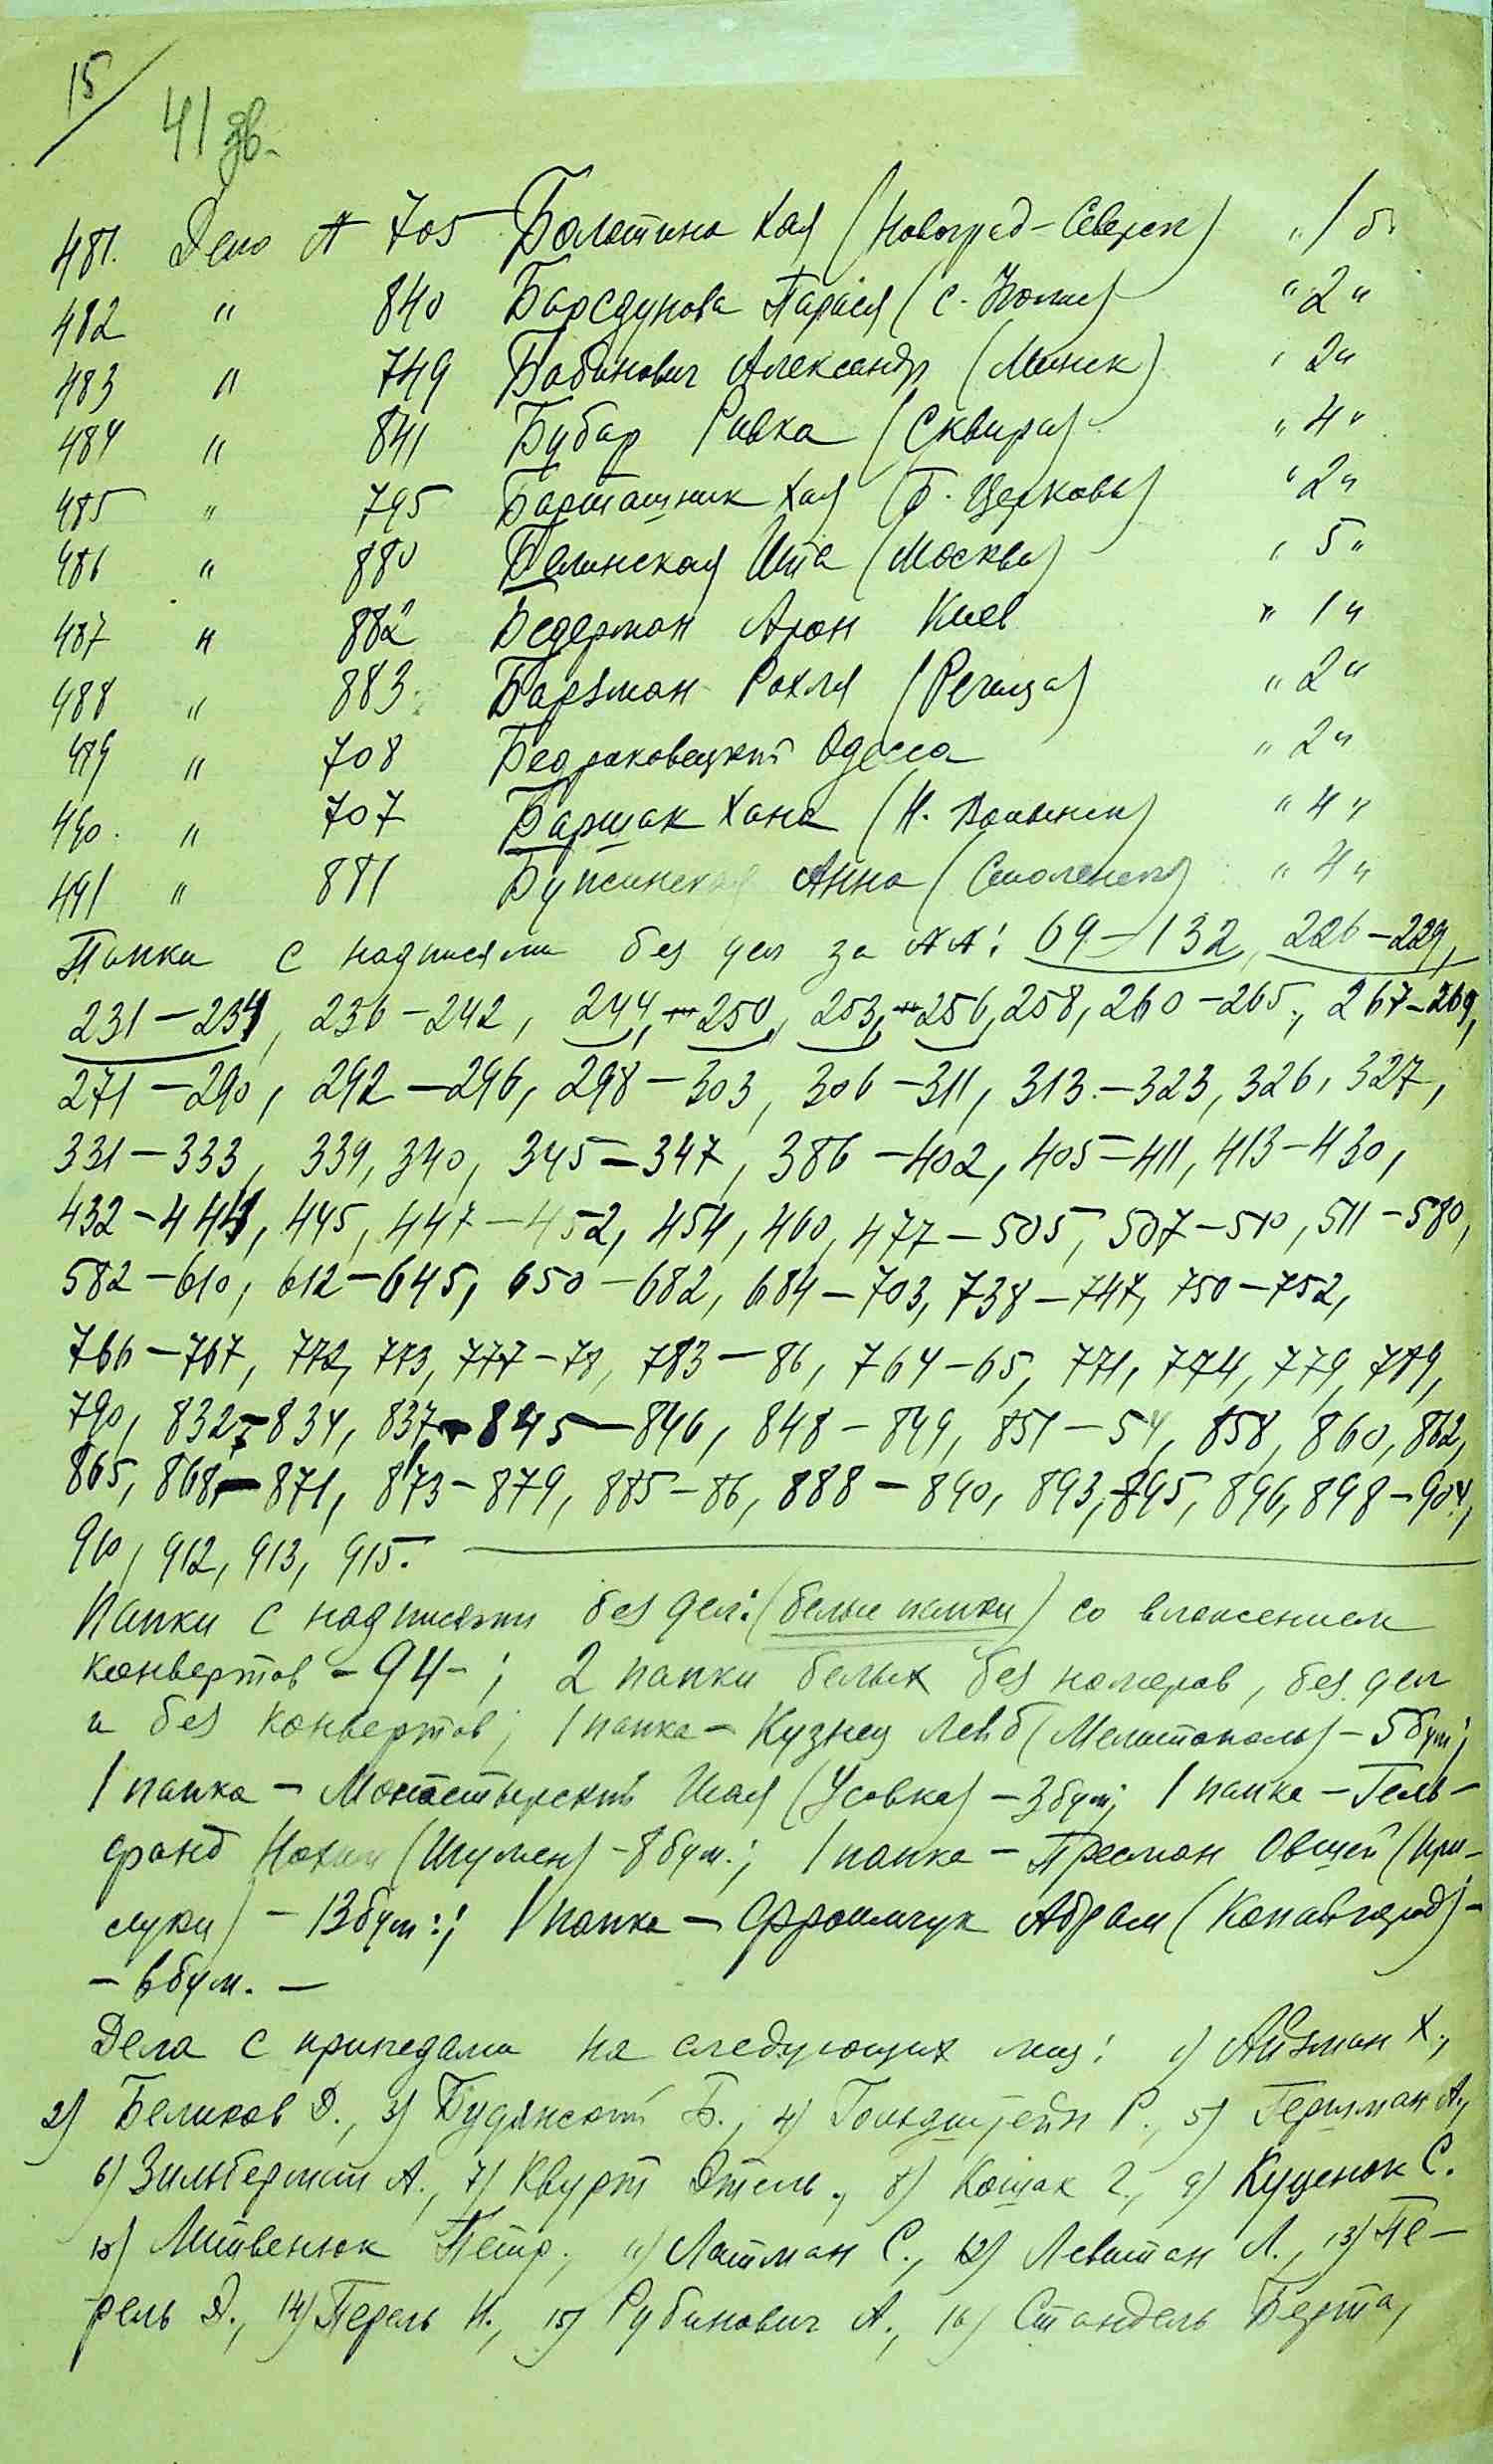 15
41 зв.
481. Дело № 705 Болотина Хая (Новоград-Северск) " 1 б.
482 " 840 Парася (с. " 2 "
483 " 749 Бабинович Александр (Минск) " 2 "
484 " 841 Бубар Ривка (Сквира) " 4 "
485 " 795 Барташник Хая (Б. Церковь) " 2 "
486 " 880 Белинская Ита (Москва) " 5 "
487 " 882 Бедерман Арон Киев " 1 "
488 " 883 Барзман Рахля (Речица) " 2 "
489 " 708 Бедраковецкий Одесса " 2 "
490. " 707 Баршак Хана (Н. Волынск) " 4 "
491 " 881 Анна (Смоленск) " 4 "
Папки с надписями без дел за №№: 69–132, 226–229,
231–234, 236–242, 244, 250, 253, 256, 258, 260–265, 267–269,
271–290, 292–296, 298–303, 306–311, 313–323, 326, 327,
331–333, 339, 340, 345–347, 386–402, 405–411, 413–430,
432–444, 445, 447–452, 454, 460, 477–505, 507–510, 511–580,
582–610, 612–645, 650–682, 684–703, 738–747, 750–752,
766–767, 772, 773, 777–78, 783–86, 764–65, 771, 774, 779,
790, 832–834, 837, 845–846, 848–849, 851–54, 858, 860, 862,
865, 868–871, 873–879, 885–86, 888–890, 893, 895, 896, 898–904,
910, 912, 913, 915.
Папки с надписями без дел: (белые папки) со вложением
конвертов – 94 – ; 2 папки белых без номеров, без дел
и без конвертов; 1 папка – Кузнец Лейб (Мелитополь) – 5 бум;
1 папка – Монастырский Исая (Усовка) – 3 бум; 1 папка – Гель-
фанд Нохим (Игумен) – 8 бум.; 1 папка – Пресман Овшей (При-
луки) – 13 бум.; 1 папка – Абрам (Копайгород) –
– 6 бум. –
Дела с на следующих лиц: 1) Айзман Х.,
2) Беликов Д., 3) Будянский Б., 4) Гольдштейн Р., 5) Гершман А.,
6) Зильберман А., 7) Квурт Этель., 8) Кошак Г., 9) Куценок С.
10) Литвенюк Петр., 11) Латман С., 12) Левитан Л., 13) Пе-
рель Д., 14) Перель И., 15) Рубинович А., 16) Стандель Берта,